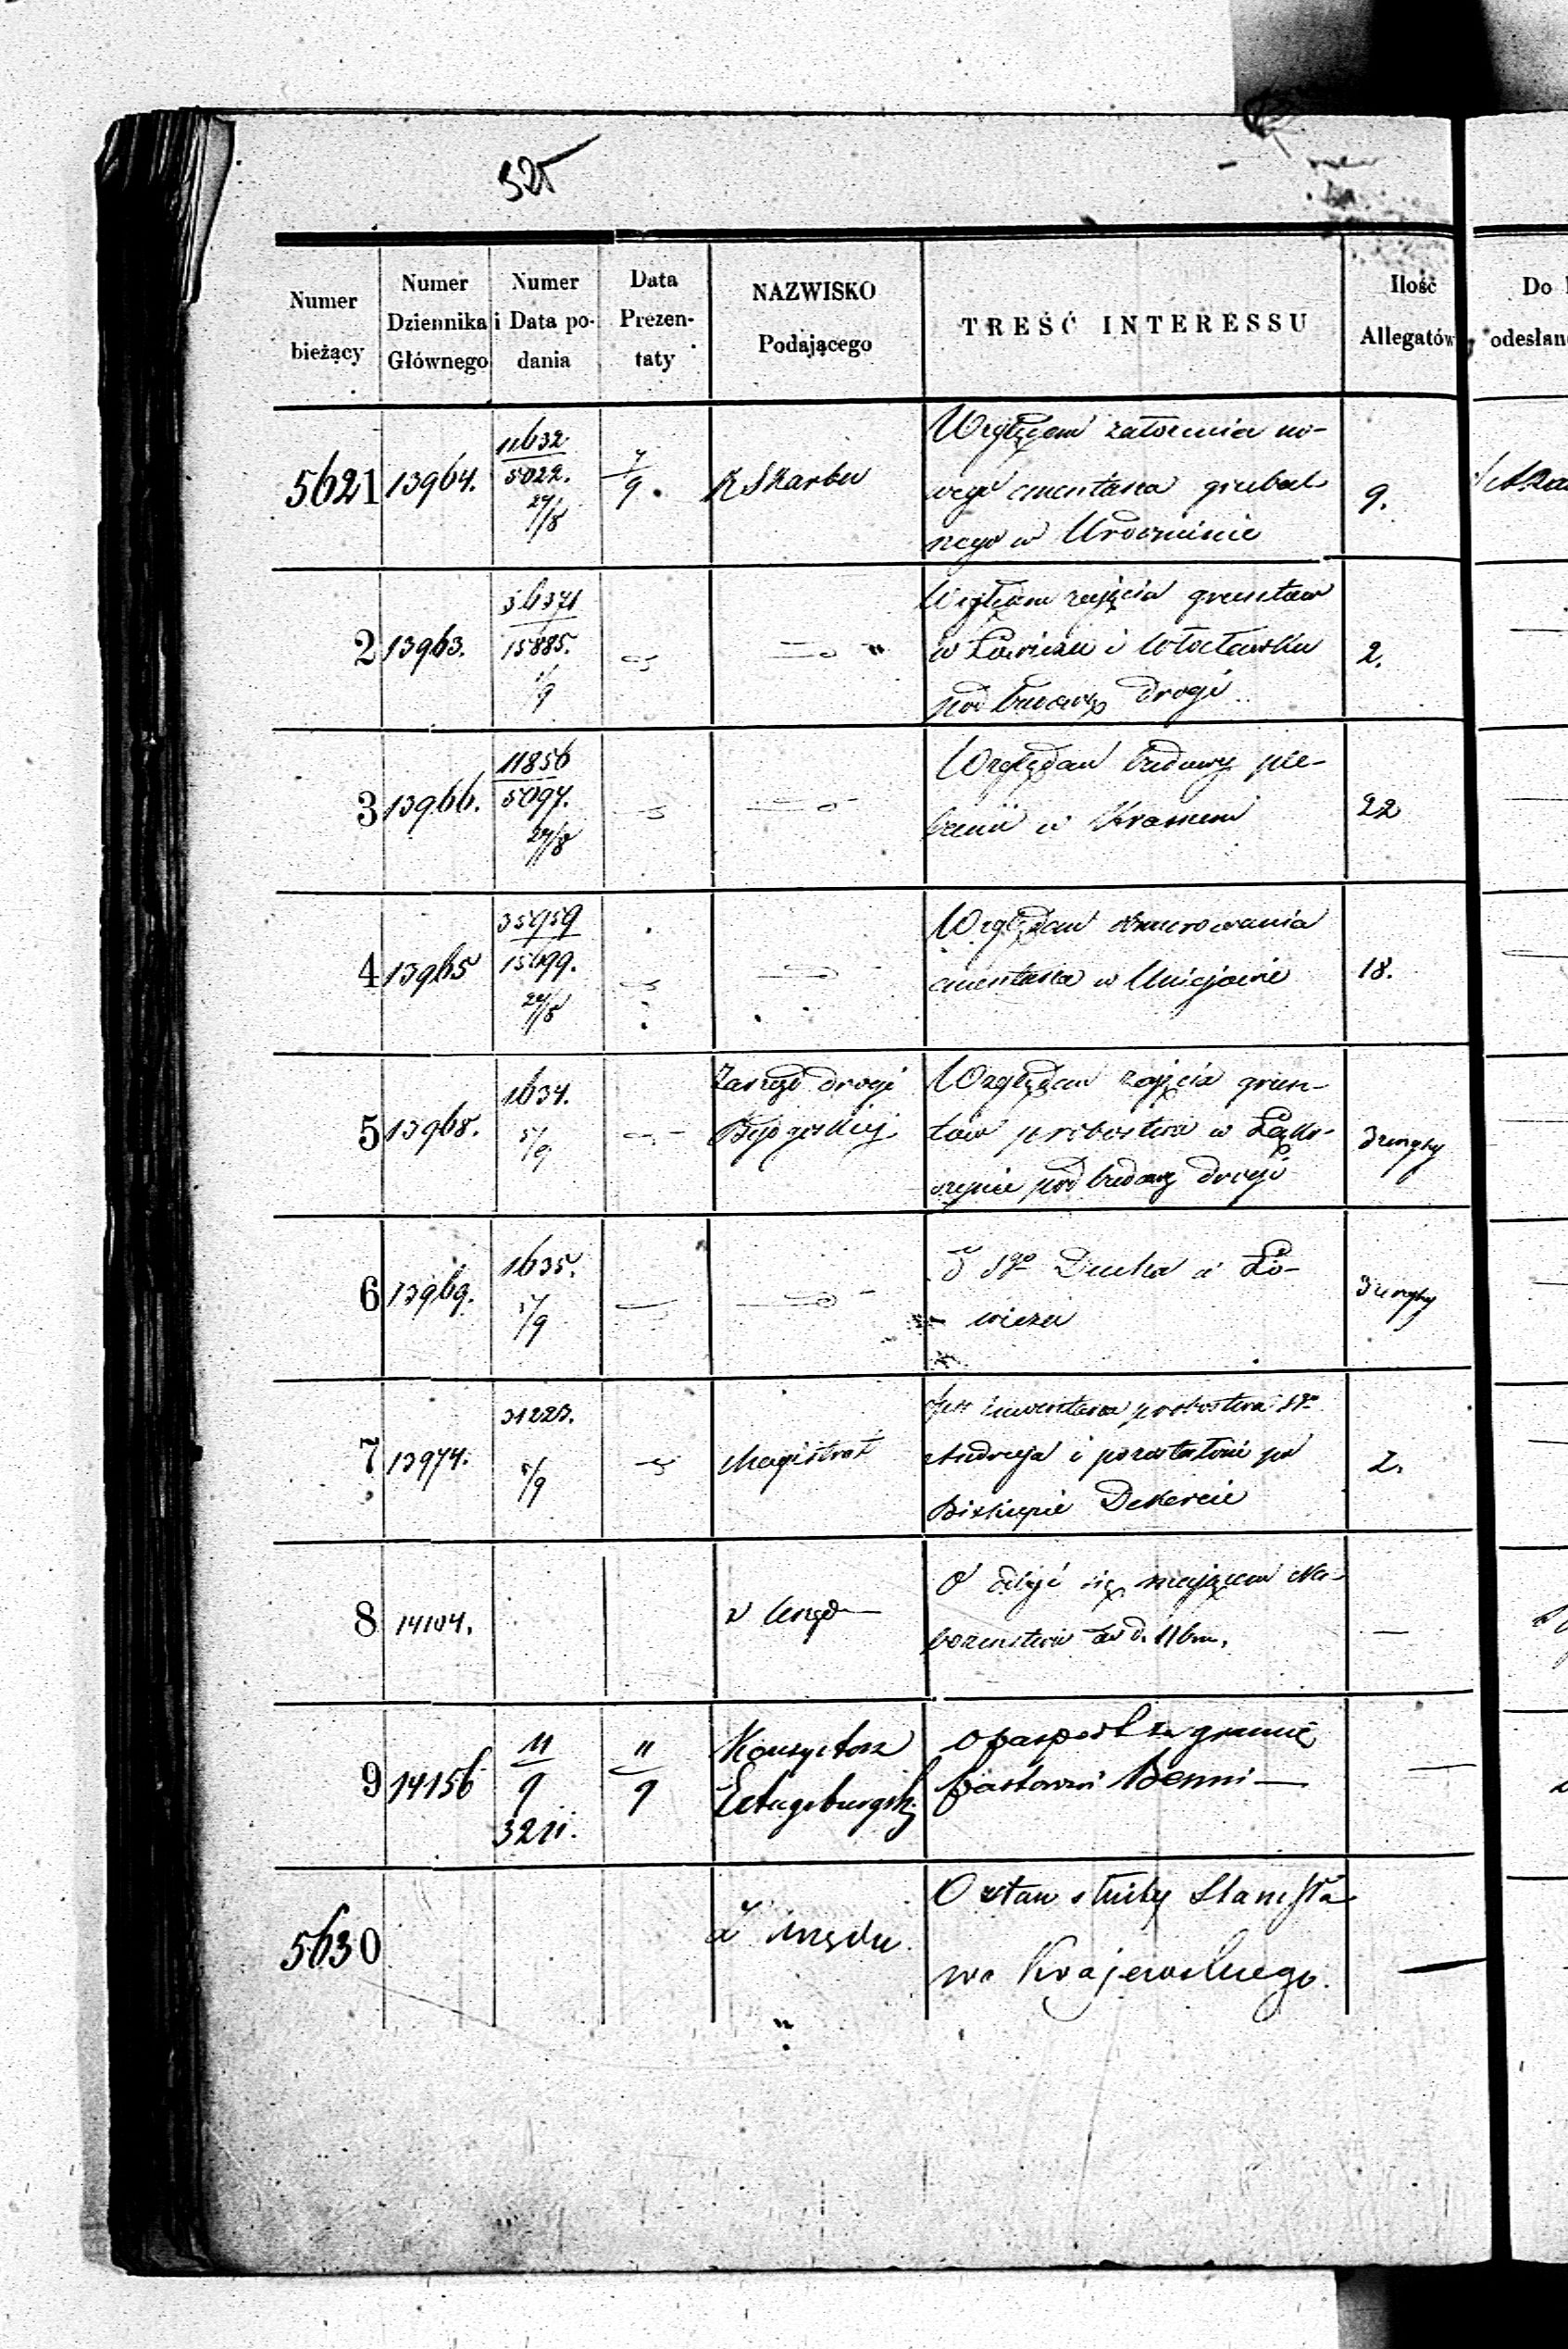 325
Numer bieżący
Numer Dziennika Głównego
Numer i Data podania
Data Prezentaty
NAZWISKO Podającego
TREŚĆ INTERESSU
Ilość Allegatów
Do
odesłan
5621 13964. 11632 / 5022. 27/8 7/9. K Skarbu
Względem założenia no-
wego cmentarza grzebal-
nego w
9.
2 13963. 15885. 1/9
Względem zajęcia gruntów
w Łowiczu i Włocławsku
pod budowę drogi
2.
3 13966. 11856 / 5097. 27/8
Względem budowy ple-
banii w
22
4 13965 35959 / 15699. 27/8
Względem obmurowania
cmentarza w Uniejowie
18.
5 13968. 1634. 5/9
Zarząd drogi
Bydgoskiej
Względem zajęcia grun-
tów probostwa w
pod budowę drogi
6 13969. 1635. 5/9
Sgo Ducha w Ło-
wiczu
7 13974. 31223. 5/9
Magistrat
inwentarza probostwa Sgo
Andrzeja i pozostałości po
Biskupie Dekercie
2.
8 14104.
z Urzędu
O odbyć się mającem Na-
bożeństwie
—
9 14156 11/9 3211. 11/9
Konsystorz
Ew Augsburgski
o pasport za granicę
pastorowi Benni —
—
5630
Z Urzędu
O stan służby Stanisła
wa Krajewskiego.
—